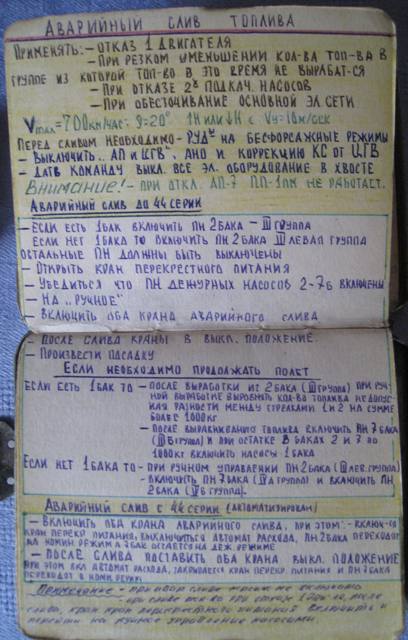 АВАРИЙНЫЙ СЛИВ ТОПЛИВА
ПРИМЕНЯТЬ: – ОТКАЗ 1 ДВИГАТЕЛЯ
– ПРИ РЕЗКОМ УМЕНЬШЕНИИ КОЛ-ВА ТОП-ВА В
ГРУППЕ ИЗ КОТОРОЙ ТОП-ВО В ЭТО ВРЕМЯ НЕ ВЫРАБАТ-СЯ
– ПРИ ОТКАЗЕ 2Х ПОДКАЧ. НАСОСОВ
– ПРИ ОБЕСТОЧИВАНИЕ ОСНОВНОЙ ЭЛ. СЕТИ
Vmax=700КМ/ЧАС. 1Н ИЛИ ↓Н С Vy=10М/СЕК
ПЕРЕД СЛИВОМ НЕОБХОДИМО – РУДЫ НА БЕСФОРСАЖНЫЕ РЕЖИМЫ
– ВЫКЛЮЧИТЬ АП И ЦГВ, АНО И КОРРЕКЦИЮ КС ОТ ЦГВ
– ДАТЬ КОМАНДУ ВЫКЛ. ВСЕ ЭЛ. ОБОРУДОВАНИЕ В ХВОСТЕ
Внимание! – ПРИ ОТКЛ. АП-7 ПП-1ПМ НЕ РАБОТАЕТ.
АВАРИЙНЫЙ СЛИВ ДО 44 СЕРИИ
– ЕСЛИ ЕСТЬ 1 БАК ВКЛЮЧИТЬ ПН 2 БАКА – III ГРУППА
ЕСЛИ НЕТ 1 БАКА ТО ВКЛЮЧИТЬ ПН 2 БАКА III ЛЕВАЯ ГРУППА
ОСТАЛЬНЫЕ ПН ДОЛЖНЫ БЫТЬ ВЫКЛЮЧЕНЫ
– ОТКРЫТЬ КРАН ПЕРЕКРЕСТНОГО ПИТАНИЯ
– УБЕДИТЬСЯ ЧТО ПН ДЕЖУРНЫХ НАСОСОВ 2-7Б ВКЛЮЧЕНЫ
– НА „РУЧНОЕ"
– ВКЛЮЧИТЬ ОБА КРАНА АВАРИЙНОГО СЛИВА
– ПОСЛЕ СЛИВА КРАНЫ В ВЫКЛ. ПОЛОЖЕНИЕ.
– ПРОИЗВЕСТИ ПОСАДКУ
ЕСЛИ НЕОБХОДИМО ПРОДОЛЖАТЬ ПОЛЕТ
ЕСЛИ ЕСТЬ 1 БАК ТО – ПОСЛЕ ВЫРАБОТКИ ИЗ 2 БАКА (III ГРУППА) ПРИ РУЧ-
НОЙ ВЫРАБОТКЕ ВЫРОВНЯТЬ КОЛ-ВО ТОПЛИВА НЕ ДОПУС-
КАЯ РАЗНОСТИ МЕЖДУ СТРЕЛКАМИ 1 И 2 НА СУММЕ
БОЛЕЕ 1000 КГ
– ПОСЛЕ ВЫРАВНИВАНИЯ ТОПЛИВА ВКЛЮЧИТЬ ПН 7 БАКА
И ПРИ ОСТАТКЕ В БАКАХ 2 И 7 ПО
1000 КГ ВКЛЮЧИТЬ НАСОСЫ 1 БАКА
ЕСЛИ НЕТ 1 БАКА ТО – ПРИ РУЧНОМ УПРАВЛЕНИИ ПН 2 БАКА (III ЛЕВ. ГРУППА)
– ВКЛЮЧИТЬ ПН 7 БАКА И ВКЛЮЧИТЬ ПН
2 БАКА
АВАРИЙНЫЙ СЛИВ С 44 СЕРИИ (АВТОМАТИЗИРОВАН)
– ВКЛЮЧИТЬ ОБА КРАНА АВАРИЙНОГО СЛИВА, ПРИ ЭТОМ: – ВКЛЮЧ-СЯ
КРАН ПЕРЕКР ПИТАНИЯ, ВЫКЛЮЧИТЬСЯ АВТОМАТ РАСХОДА, ПН 2 БАКА ПЕРЕХОДЯТ
НА НОМИН. РЕЖИМ А 7 БАК ОСТАЕТСЯ НА ДЕЖ. РЕЖИМЕ
– ПОСЛЕ СЛИВА ПОСТАВИТЬ ОБА КРАНА ВЫКЛ. ПОЛОЖЕНИЕ
ПРИ ЭТОМ ВКЛ АВТОМАТ РАСХОДА, ЗАКРЫВАЕТСЯ КРАН ПЕРЕКР. ПИТАНИЯ И ПН 7 БАКА
ПЕРЕХОДЯТ В НОМИН. РЕЖИМ
Примечание – при авар сливе
после
слива, кран перекрестного питания включить и
перейти на ручное управление насосами.